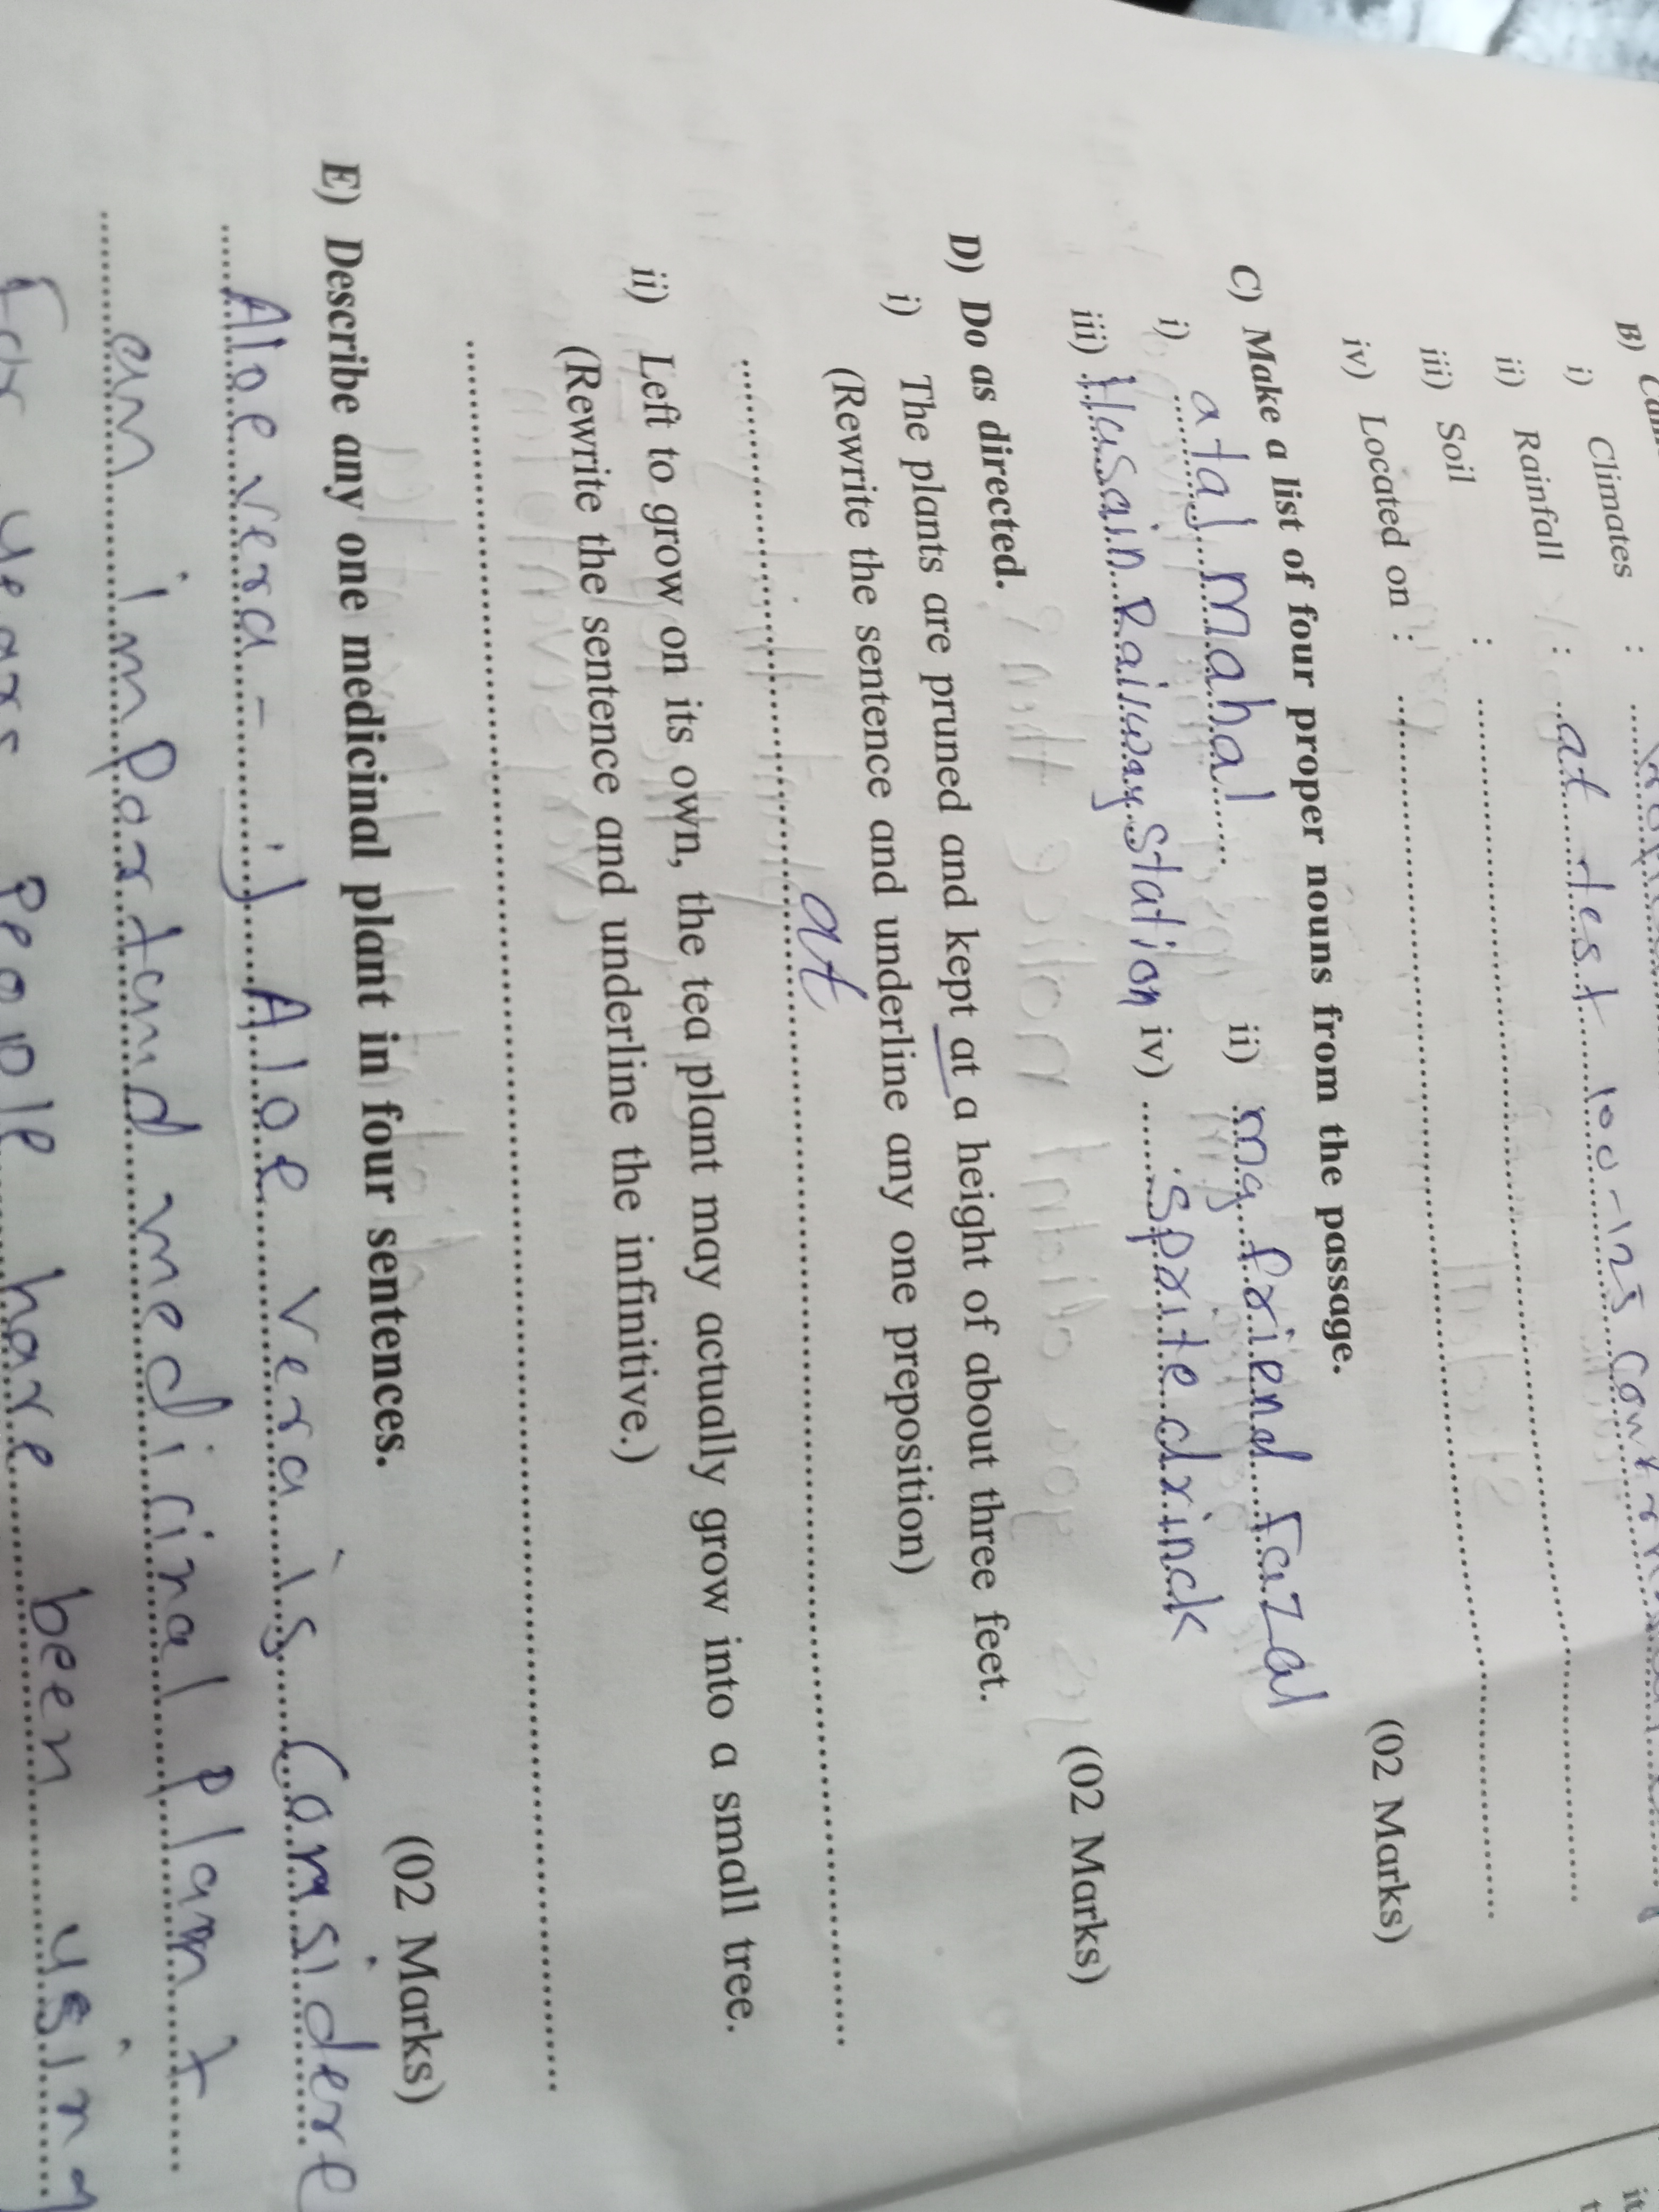 B)
i) Climates :
ii) Rainfall : at lest 100-125
iii) Soil :
iv) Located on :
C) Make a list of four proper nouns from the passage. (02 Marks)
i) atal mahal ii) my friend Fazal
iii) Husain Railway Station iv) sprite drinck
D) Do as directed. (02 Marks)
i) The plants are pruned and kept at a height of about three feet.
(Rewrite the sentence and underline any one preposition)
at
ii) Left to grow on its own, the tea plant may actually grow into a small tree.
(Rewrite the sentence and underline the infinitive.)
E) Describe any one medicinal plant in four sentences. (02 Marks)
Aloe vera - i) Aloe vera is considere
an important medicinal plant
For years people have been using